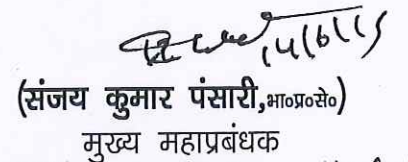 14/6/15
(संजय कुमार पंसारी,भा०प्र०से०)
मुख्य महाप्रबंधक